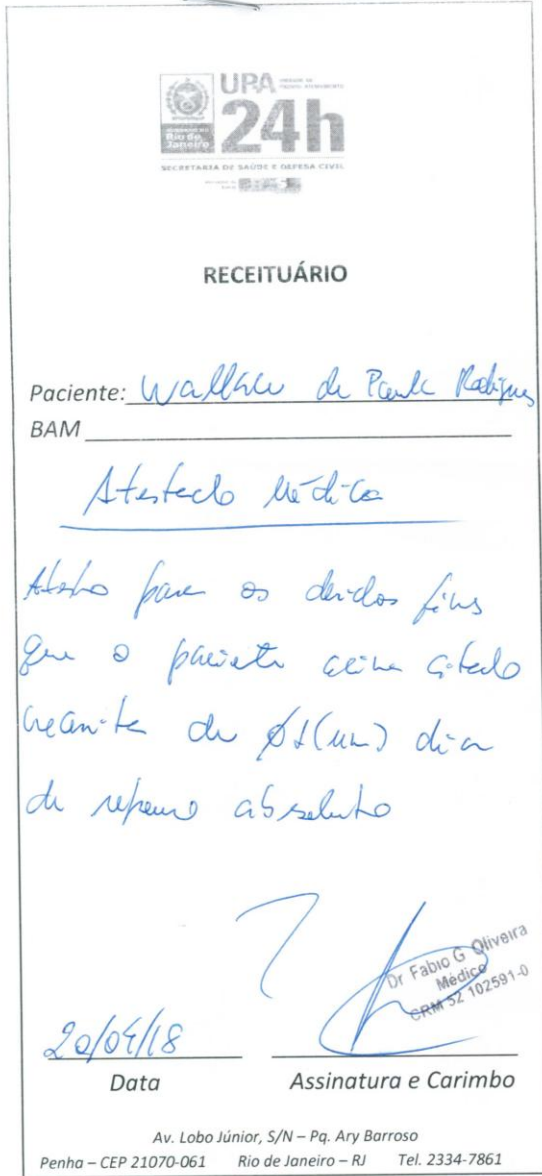 UPA UNIDADE DE PRONTO ATENDIMENTO
24h
GOVERNO DO
Rio de
Janeiro
SECRETARIA DE SAÚDE E DEFESA CIVIL
RECEITUÁRIO
Paciente: Wallace de Paula Rodrigues
BAM
Atestado Médico
Atesto para os devidos fins
que o paciente acima citado
necessita de 01 (um) dia
de repouso absoluto
Dr Fabio G Oliveira
Médico
CRM 52 102591-0
20/04/18
Data Assinatura e Carimbo
Av. Lobo Júnior, S/N – Pq. Ary Barroso
Penha – CEP 21070-061 Rio de Janeiro – RJ Tel. 2334-7861